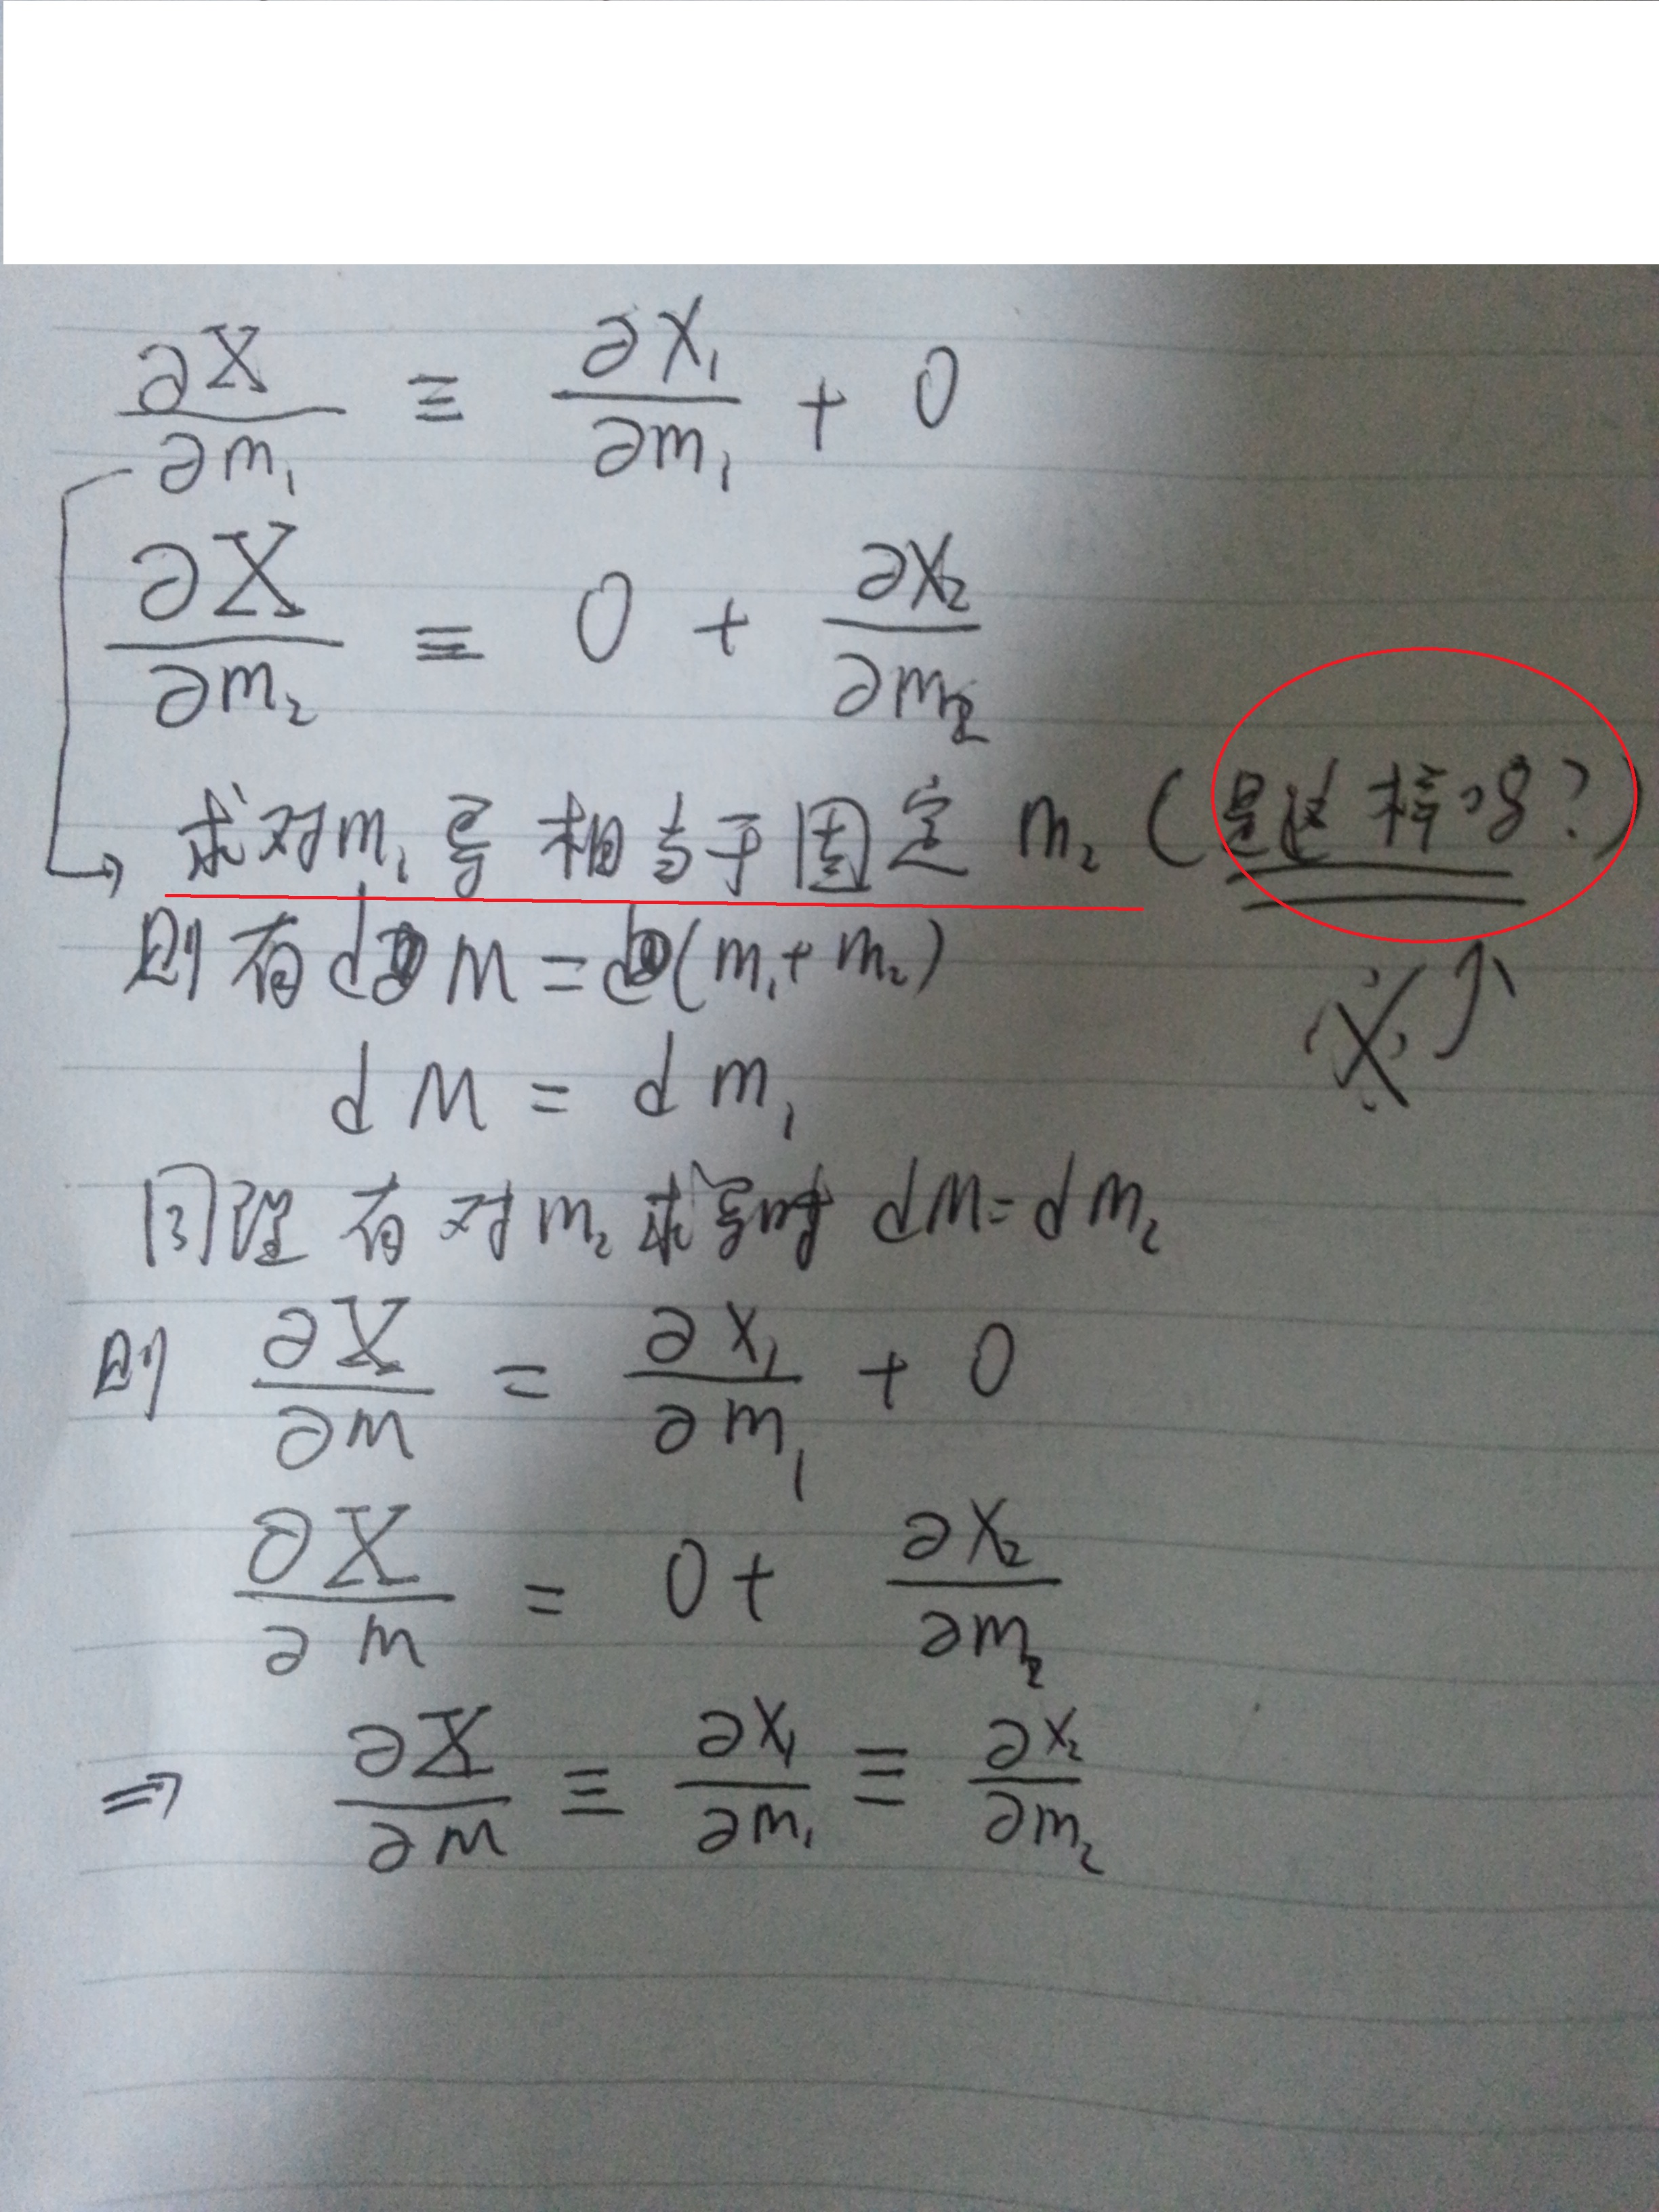 ∂X/∂m₁ ≡ ∂x₁/∂m₁ + 0
∂X/∂m₂ ≡ 0 + ∂x₂/∂m₂
求对m₁导相当于固定 m₂ (是这样吗?)
则有 d M = d(m₁+m₂)
d M = d m₁
同理有对m₂求导时 dM=dm₂
则 ∂X/∂M = ∂x₁/∂m₁ + 0
∂X/∂M = 0 + ∂x₂/∂m₂
⇒ ∂X/∂M ≡ ∂x₁/∂m₁ ≡ ∂x₂/∂m₂